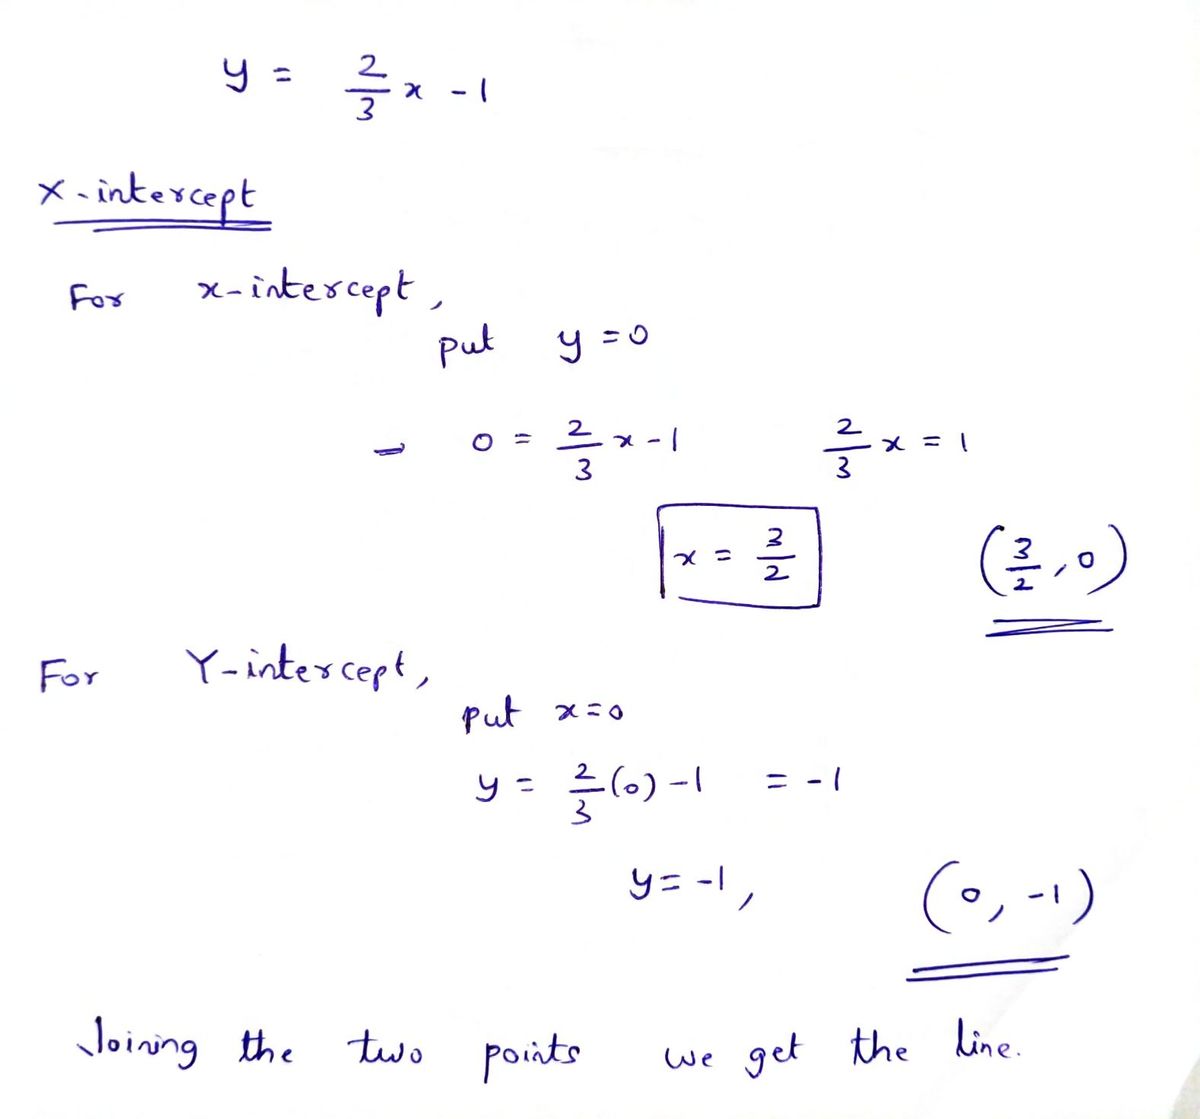 y = 2/3 x - 1
X-intercept
For x-intercept,
put y = 0
0 = 2/3 x - 1 2/3 x = 1
x = 3/2 (3/2, 0)
For Y-intercept,
put x = 0
y = 2/3 (0) - 1 = -1
y = -1, (0, -1)
Joining the two points we get the line.